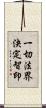 一切法界
決定智印